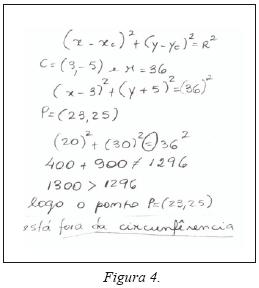 (x - xc)² + (y - yc)² = R²
C = (3, -5) e r = 36
(x - 3)² + (y + 5)² = (36)²
P = (23, 25)
(20)² + (30)² = 36²
400 + 900 ≠ 1296
1300 > 1296
logo o ponto P = (23, 25)
está fora da circunferência
Figura 4.